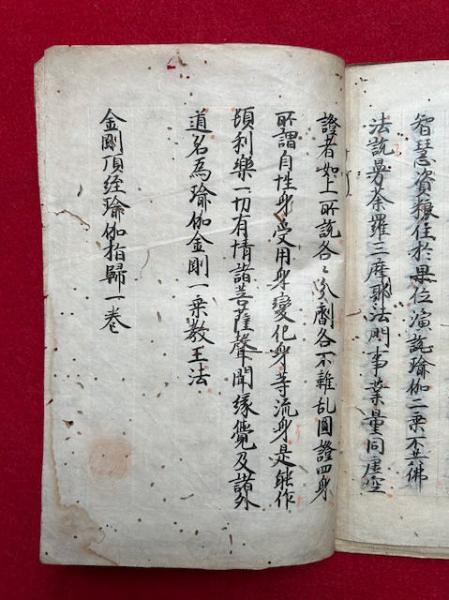 智慧資糧住於果位演說瑜伽二乘不共佛
法說曼荼羅三摩耶法門事業量同虛空
證者如上所說各〻分劑各不雜乱圓證四身
所謂自性身受用身變化身等流身是能作
頓利樂一切有情諸菩薩聲聞緣覺及諸外
道名為瑜伽金剛一乘教王法
金剛頂経瑜伽指歸一卷